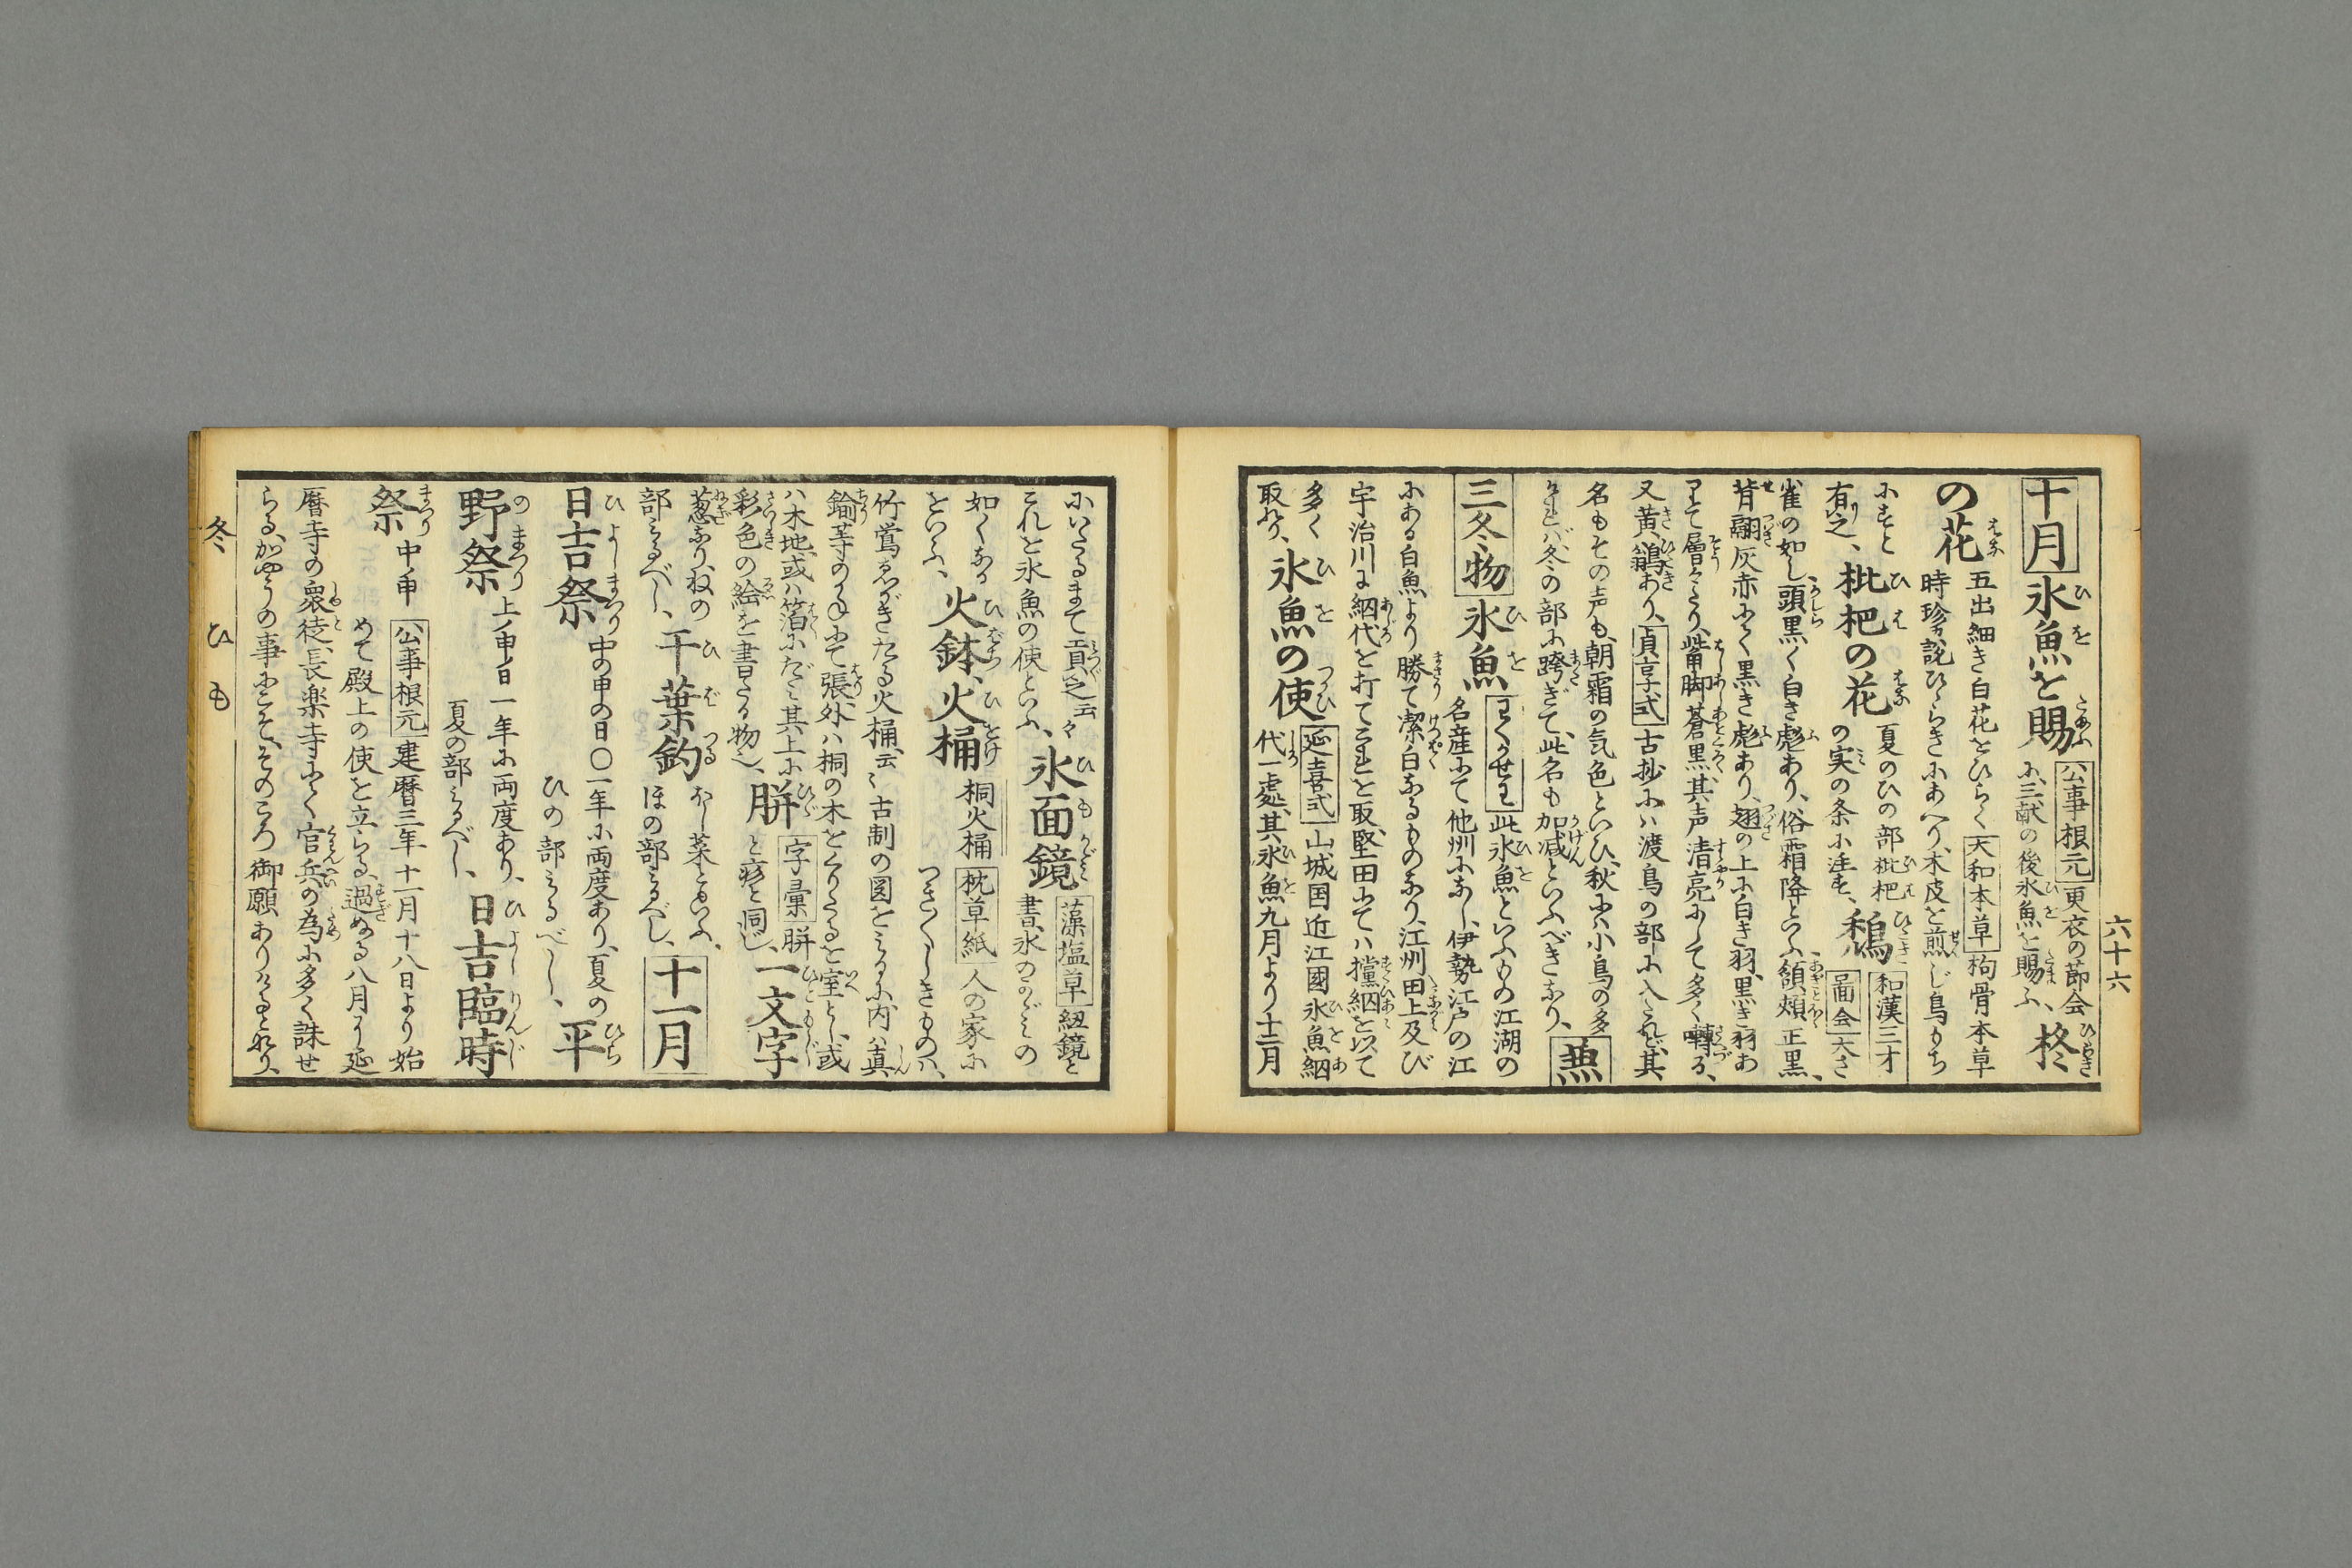 六十六
十月 氷魚を賜 公事根元 更衣の節会
に、三献の後氷魚を賜ふ、 柊
の花 五出細き白花をひらく 大和本草 枸骨本草
時珍が説ひらきにあへり、木皮を煎じ鳥もち
にすと
有之、 枇杷の花 夏のひの部枇杷
の実の条に注す、 鶲 和漢三才
図会 大さ
雀の如し、頭黒く白き彪あり、俗霜降といふ、頷頬正黒、
背翮灰赤にく黒き彪あり、翅の上に白き羽、黒き羽あ
りて層々たり、觜脚蒼黒、其声清亮にして多く囀る、
又黄鶲あり、 貞享式 古抄にハ渡鳥の部に入たれど、其
名もその声も、朝霜の気色といひ、秋にハ小鳥の多
ければ、冬の部に跨ぎて、此名も加減といふべきなり、 兼
三冬物 氷魚 此氷魚といふもの江湖の
名産にて他州になし、伊勢江戸の江
にある白魚より勝て潔白なるものなり、江州田上及び
宇治川に網代を打てこれを取、堅田にてハ攩網を以て
多く
取れり、 氷魚の使 延喜式 山城国近江國氷魚網
代一處、其氷魚九月より十二月
にいたるまて貢之云々 氷面鏡 藻塩草 紐鏡と
これを氷魚の使といふ、 書、氷のかゞみの
如くなる
をいふ、 火鉢、火桶 桐火桶 枕草紙 人の家に
つき〲しきものハ、
竹鴬ゑがきたる火桶、云々 古制の図をみるに、内ハ真
鍮等のるゐにて張、外ハ桐の木をくりたるを室とし、或
ハ木地、或ハ箔にだミ其上に
彩色の絵を書たる物也、 胼 字彙 胼
と疹と同じ、 一文字
葱なり、ねの
部みるべし、 干葉釣 ほし菜ともいふ、
ほの部みるべし、 十一月
日吉祭 中の申の日〇一年に両度あり、夏の
ひの部みるべし、 平
野祭 上ノ申ノ日一年に両度あり、
夏の部みるべし、 日吉臨時
祭 中ノ申 公事根元 建暦三年十一月十八日より始
めて殿上の使を立らる、過ぬる八月に延
暦寺の衆徒、長楽寺にく官兵の為に多く誅せ
らる、かやうの事にこそ、そのころ御願ありけるとなり、
冬 ひ も